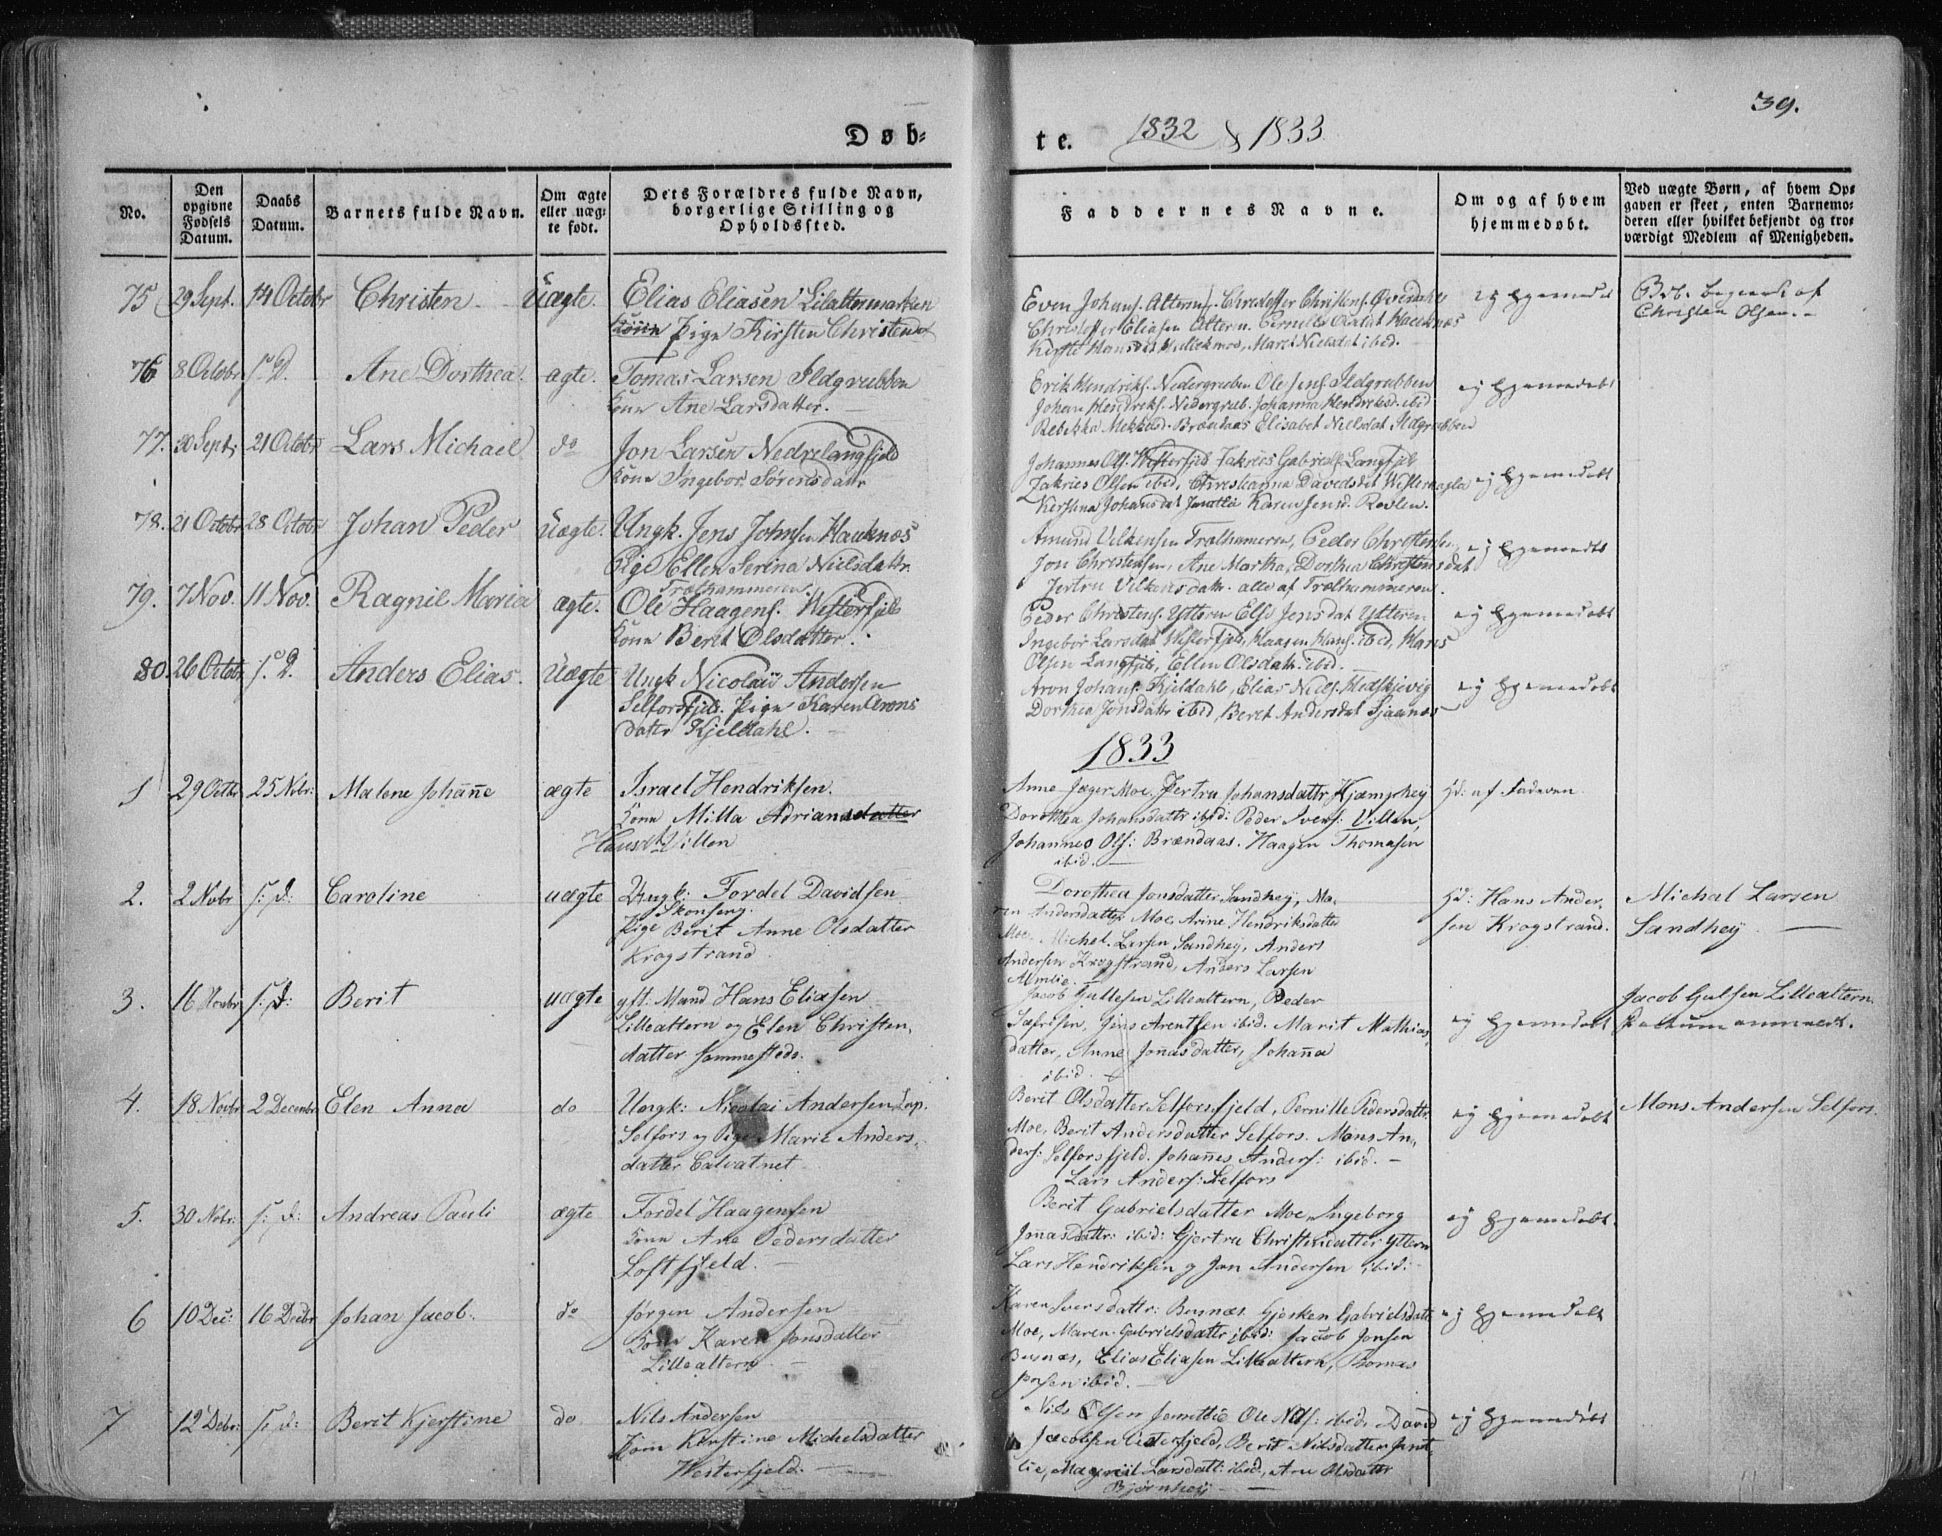 39.
Døb-
te. 1832 & 1833.
No.
Den opgivne Fødsels Datum.
Daabs Datum.
Barnets fulde Navn.
Om ægte eller uægte født.
Dets Forældres fulde Navn, borgerlige Stilling og Opholdssted.
Faddernes Navne.
Om og af hvem hjemmedøbt.
Ved uægte Børn, af hvem Opgaven er skeet, enten Barnemoderen eller hvilket bekjendt og troværdigt Medlem af Menigheden.
75 29 Sept. 14 Octobr Christen Uægte.
Elias Eliasen Lilaltermarken
Pige Kirsten Christensd
Even Johans. Alterm. Christoffer Christens.
Christoffer Eliasen Alterm.
ej hjemmedøbt
Christen Olsen.
76 8 Octobr s. D. Ane Dorthea. ægte.
Tomas Larsen Ildgrubben
Kone Ane Larsdatter.
Erik Hendriks. Nedergruben Ole Jens. Ildgrubben
Johan Hendriks. Nedergrub. Johanna Hendriksd. ibid
Rebekka Brændaas Elisabet Nielsdat Ildgrubben
ej hjemmedøbt
77. 30 Sept. 21 Octobr Lars Michael do
Jon Larsen Nedrelangfjeld
Kone Ingebor Sørensdatr
Johannes Ols. Westerfjeld Zakries Gabriels. Langfjeld
Zakries Olsen ibid, Christianna Davidsdat
Kerstina Johansdat Jamtlie Karen Jensd. Røvlen.
ej hjemmedøbt
78. 21 Octobr 28 Octobr Johan Peder Uægte.
Ungk. Jens Johnsen Hauknæs
Pige Ellen Serina Nielsdattr.
Trælhammeren.
Amund Vilkensen Trælhammeren, Peder Christensen
Jon Christensen, Ane Martha, Dorthea Christensdat
Jertru Vilkensdatr. alle af Trælhammeren.
ej hjemmedøbt
79. 7 Nov. 11 Nov. Ragnil Maria ægte.
Ole Haagens. Westerfjeld
Kone Berit Olsdatter.
Peder Christens. Ytteren Else Jensdat Ytteren
Ingebor Larsdat Westerfjeld, Haagen Hans. ibid, Hans
Olsen Langfjeld, Ellen Olsdatr. ibid.
ej hjemmedøbt
80. 26 Octobr s. D. Anders Elias. Uægte
Ungk Nicolaii Andersen
Selforsfjeld. Pige Karen Arons
datr Kjeldahl.
Aron Johans. Kjeldahl, Elias Niels.
Dorthea Jonsdatr ibid, Beret Andersdat Sjaanæs
ej hjemmedøbt
1833
1 29 Octbr 25 Nvbr: Malene Johanne ægte
Israel Hendriksen.
Kone Milla Adriansdatter
Huusm Villen
Anne Jæger Moe. Jertru Johansdattr Kjæmphey
Dorothea Johansdattr ibid: Peder Ivers: Villen,
Johannes Ols: Brændaas. Haagen Thomasen
ibid.
hd: af Faderen
2. 2 Nvbr s: d: Caroline uægte
Ungk: Fordel Davidsen
Skonseng.
Pige Berit Anne Olsdatter
Krogstrand
Dorothea Jonsdatter Sandhey, Ma-
ren Andersdatter Moe, Arine Hendriksdatter
Moe. Michel Larsen Sandhey, Anders
Andersen Krogstrand, Anders Larsen
Almlie.
hd: Hans Ander-
sen Krogstrand.
Michal Larsen
Sandhey.
3. 16 Novbr s: d: Berit uægte
gft: Mand Hans Eliasen
Lillealtern og Elen Christen-
datter sammesteds.
Jacob Gullesen Lillealtern, Peder
Jens Arentsen ibid. Marit Mathias-
datter, Anne Jonasdatter, Johanna
ibid.
ej hjemmedøbt
Jacob Gulsen Lillealtern
4. 18 Novbr 2 Decembr Elen Anna do
Ungk: Nicolai Andersen Lap.
Selfors og Pige Marit Anders-
datter Calvatnet
Berit Olsdatter Selforsfjeld, Pernille Pedersdattr
Moe, Berit Andersdatter Selfors. Mons An-
ders: Selforsfjeld. Johannes Anders: ibid.
Lars Anders: Selfors
ej hjemmedøbt
Mons Andersen Selfors.
5. 30 Nvbr: s: d: Andreas Pauli ægte
Fordel Haagensen
Kone Ane Pedersdatter
Loftfjeld.
Berit Gabrielsdatter Moe, Ingeborg
Jonasdattr: ibid: Gjertru Christensdatter Yttern
Lars Hendriksen og Jon Andersen ibid:
ej hjemmedøbt.
6 10 Dec: 16 Decbr Johan Jacob. do
Jørgen Andersen
Kone Karen Jonsdatter
Lillealtern
Karen Iversdattr: Busnæs. Gjesken Gabrielsdatt
Moe, Maren Gabrielsdattr ibid: Jacob Jonsen
Busnæs, Elias Eliasen Lillealtern, Thomas
Jonsen ibid.
ej hjemmedøbt
7 12 Debr: s: d: Berit Kjerstine do
Nils Andersen
Kone Kirstine Michelsdatter
Westerfjeld.
Nils Olsen Jamtlie Ole Nils: ibid, David
Jacobsen Westerfjeld, Berit Nilsdatter Jamt-
lie, Magrit Larsdatt: ibid, Ane Olsdatter
Bjørnhey
ej hjemmedøbt